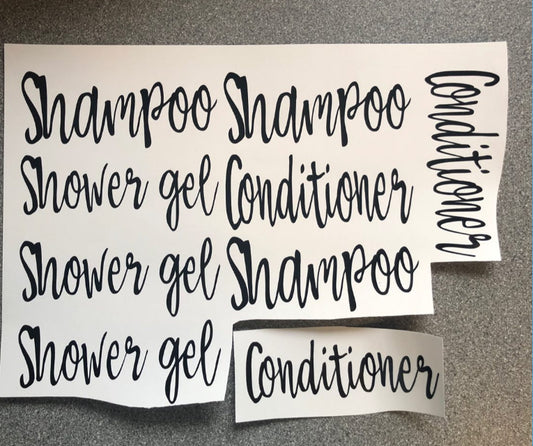 Shampoo Shampoo
Shower gel Conditioner
Shower gel Shampoo
Shower gel
Conditioner
Conditioner